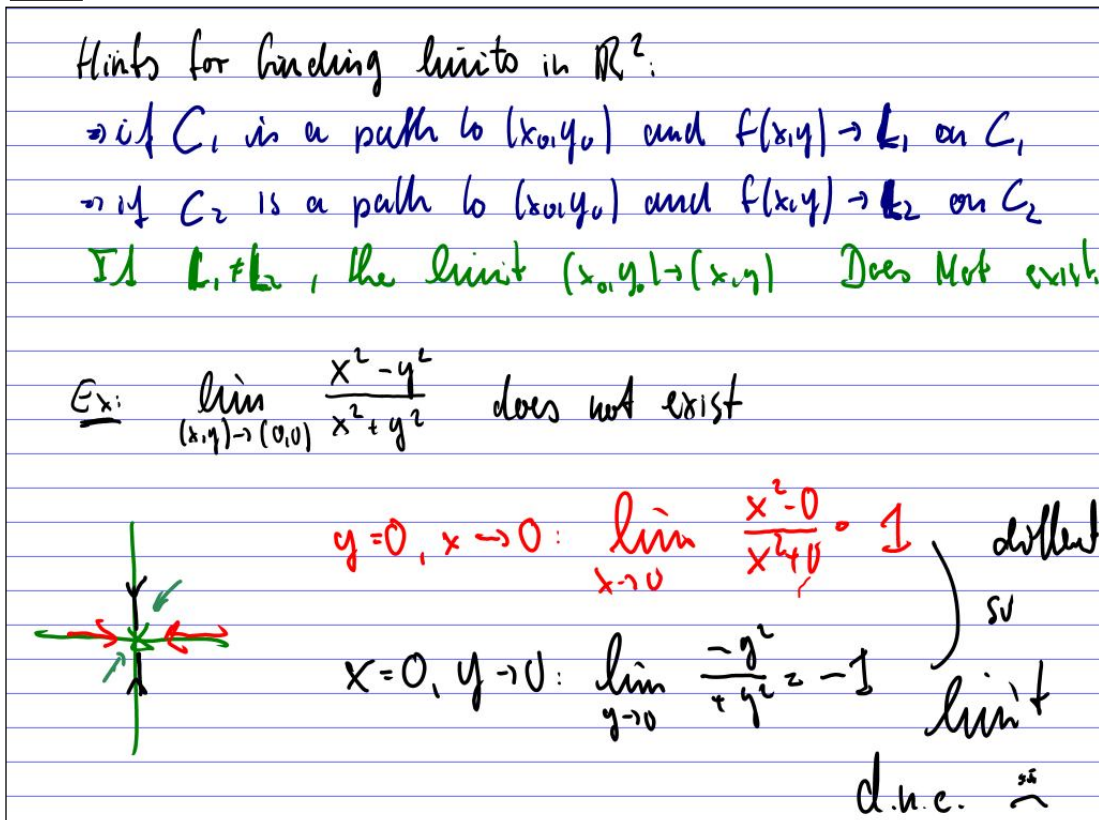 Hints for finding limits in ℝ²:
⇒ if C₁ is a path to (x₀,y₀) and f(x,y) → L₁ on C₁
⇒ if C₂ is a path to (x₀,y₀) and f(x,y) → L₂ on C₂
If L₁ ≠ L₂, the limit (x₀,y₀) → (x,y) Does Not exist.
Ex: lim (x,y)→(0,0) (x² - y²)/(x² + y²) does not exist
y=0, x→0: lim x→0 (x²-0)/(x²+0) = 1
x=0, y→0: lim y→0 (-y²)/(+y²) = -1
so
limit
d.n.e.